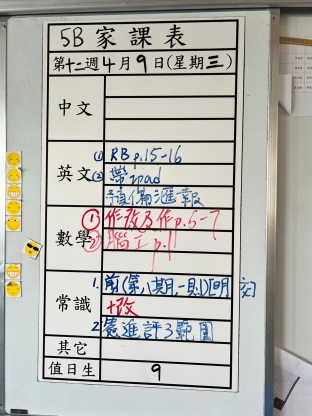 5B 家課表
第十二週4月9日(星期三)
中文
英文 ① RB p.15-16
② 帶ipad
預備滙報
數學 ① 作改及作p.5-7
② 腦立p.11
常識 1. 剪(第八期,一則)[明交]
+改
2. 憲進評3範圍
其它
值日生 9